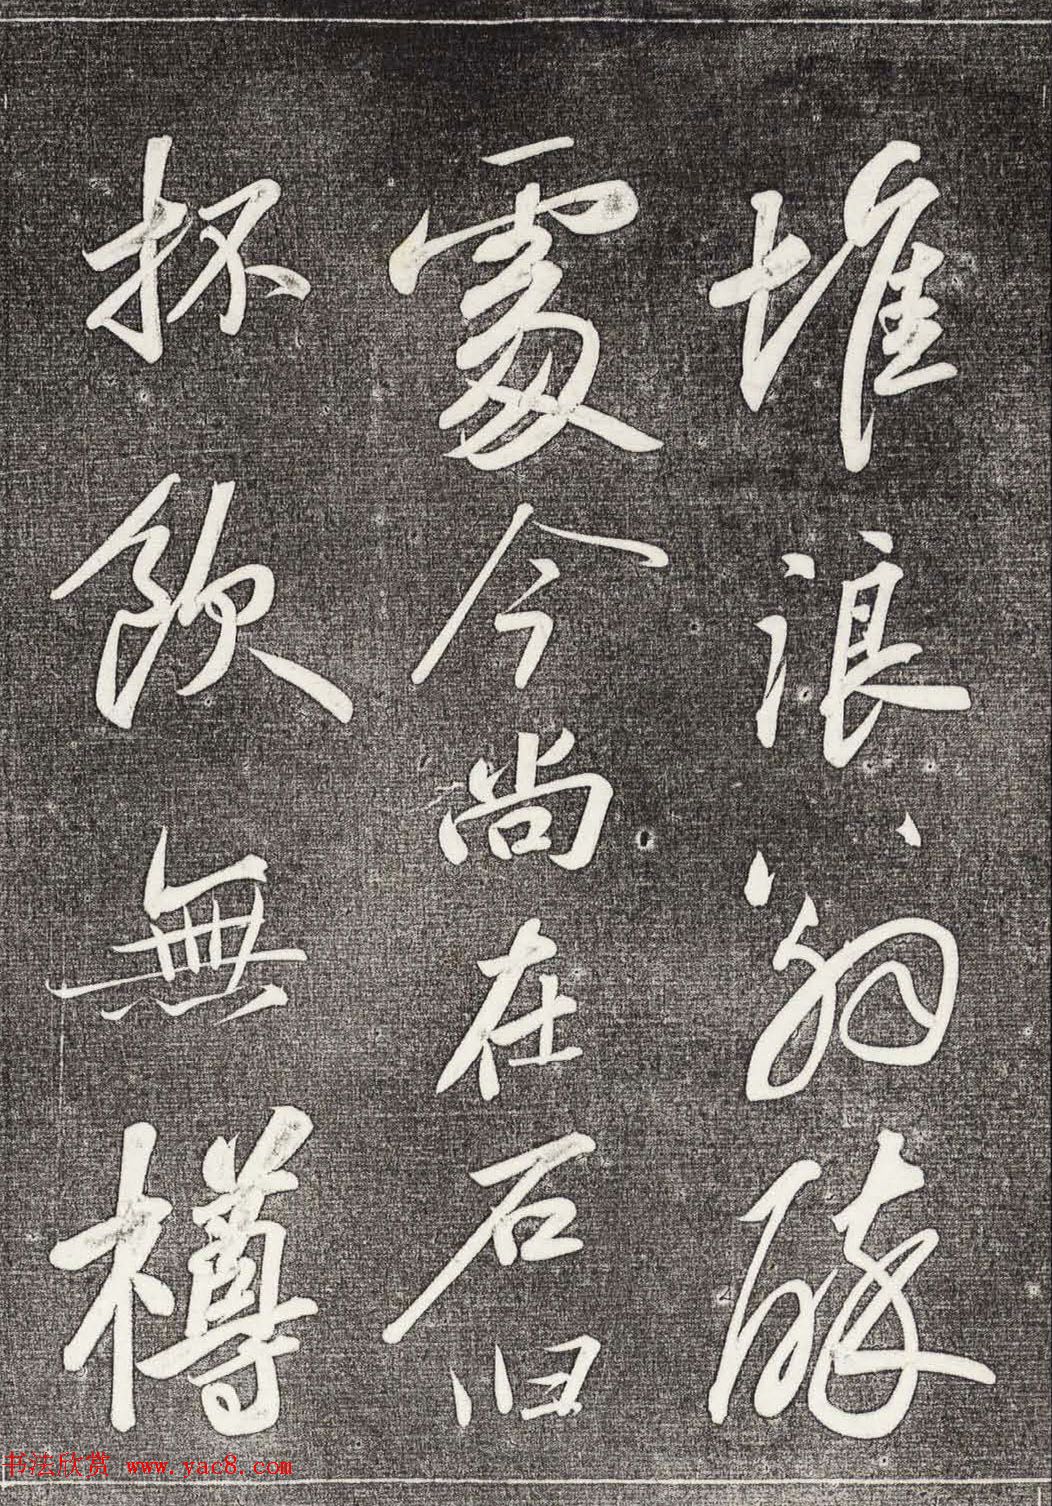 堆浪翁醉
處今尚在石臼
抔飲無樽
书法欣赏 www.yac8.com